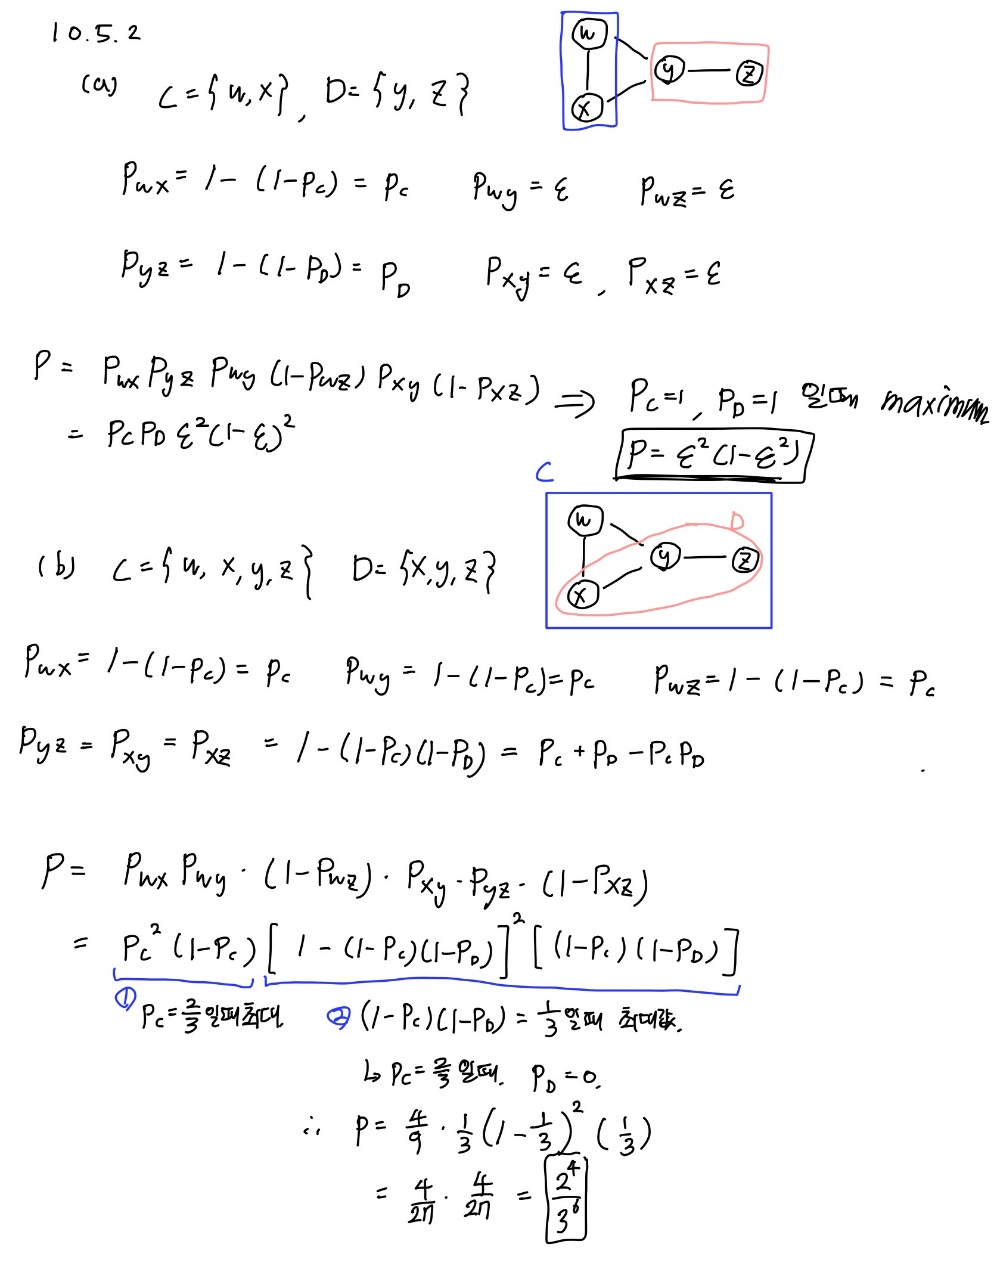 10.5.2
(a) C = { w, x }, D = { y, z }
w
y z
x
Pwx = 1 - (1-Pc) = Pc Pwy = ε Pwz = ε
Pyz = 1 - (1-PD) = PD Pxy = ε, Pxz = ε
P = Pwx Pyz Pwy (1-Pwz) Pxy (1-Pxz) ⇒ Pc=1, PD=1 일때 maximum
= Pc PD ε²(1-ε)² P = ε²(1-ε²)
C
w D
y z
x
(b) C = { w, x, y, z } D = {x, y, z}
Pwx = 1-(1-Pc) = Pc Pwy = 1-(1-Pc)=Pc Pwz = 1 - (1-Pc) = Pc
Pyz = Pxy = Pxz = 1-(1-Pc)(1-PD) = Pc + PD - Pc PD
P = Pwx Pwy · (1-Pwz) · Pxy · Pyz · (1-Pxz)
= Pc² (1-Pc) [ 1 - (1-Pc)(1-PD) ]² [ (1-Pc)(1-PD) ]
① Pc = 2/3 일때 최대. ② (1-Pc)(1-PD) = 1/3 일때 최대값.
↳ Pc = 2/3 일때. PD = 0.
∴ P = 4/9 · 1/3 (1 - 1/3)² (1/3)
= 4/27 · 4/27 = 2⁴/3⁶